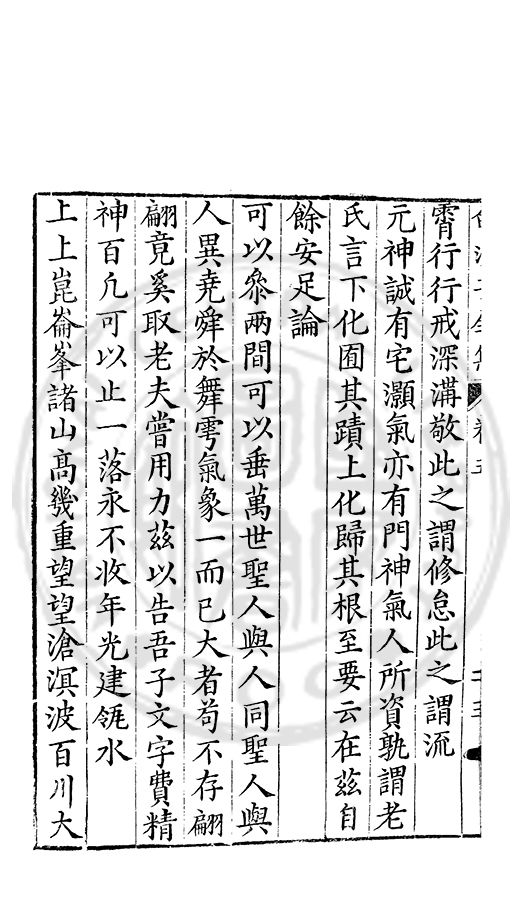 霄行行戒深溝敬此之謂修怠此之謂流
元神誠有宅灝氣亦有門神氣人所資孰謂老
氏言下化囿其蹟上化歸其根至要云在茲自
餘安足論
可以叅兩間可以垂萬世聖人與人同聖人與
人異堯舜於舞雩氣象一而已大者苟不存翩
翩竟奚取老夫嘗用力茲以告吾子文字費精
神百凢可以止一落永不收年光建瓴水
上上崑崙峯諸山髙幾重望望滄溟波百川大